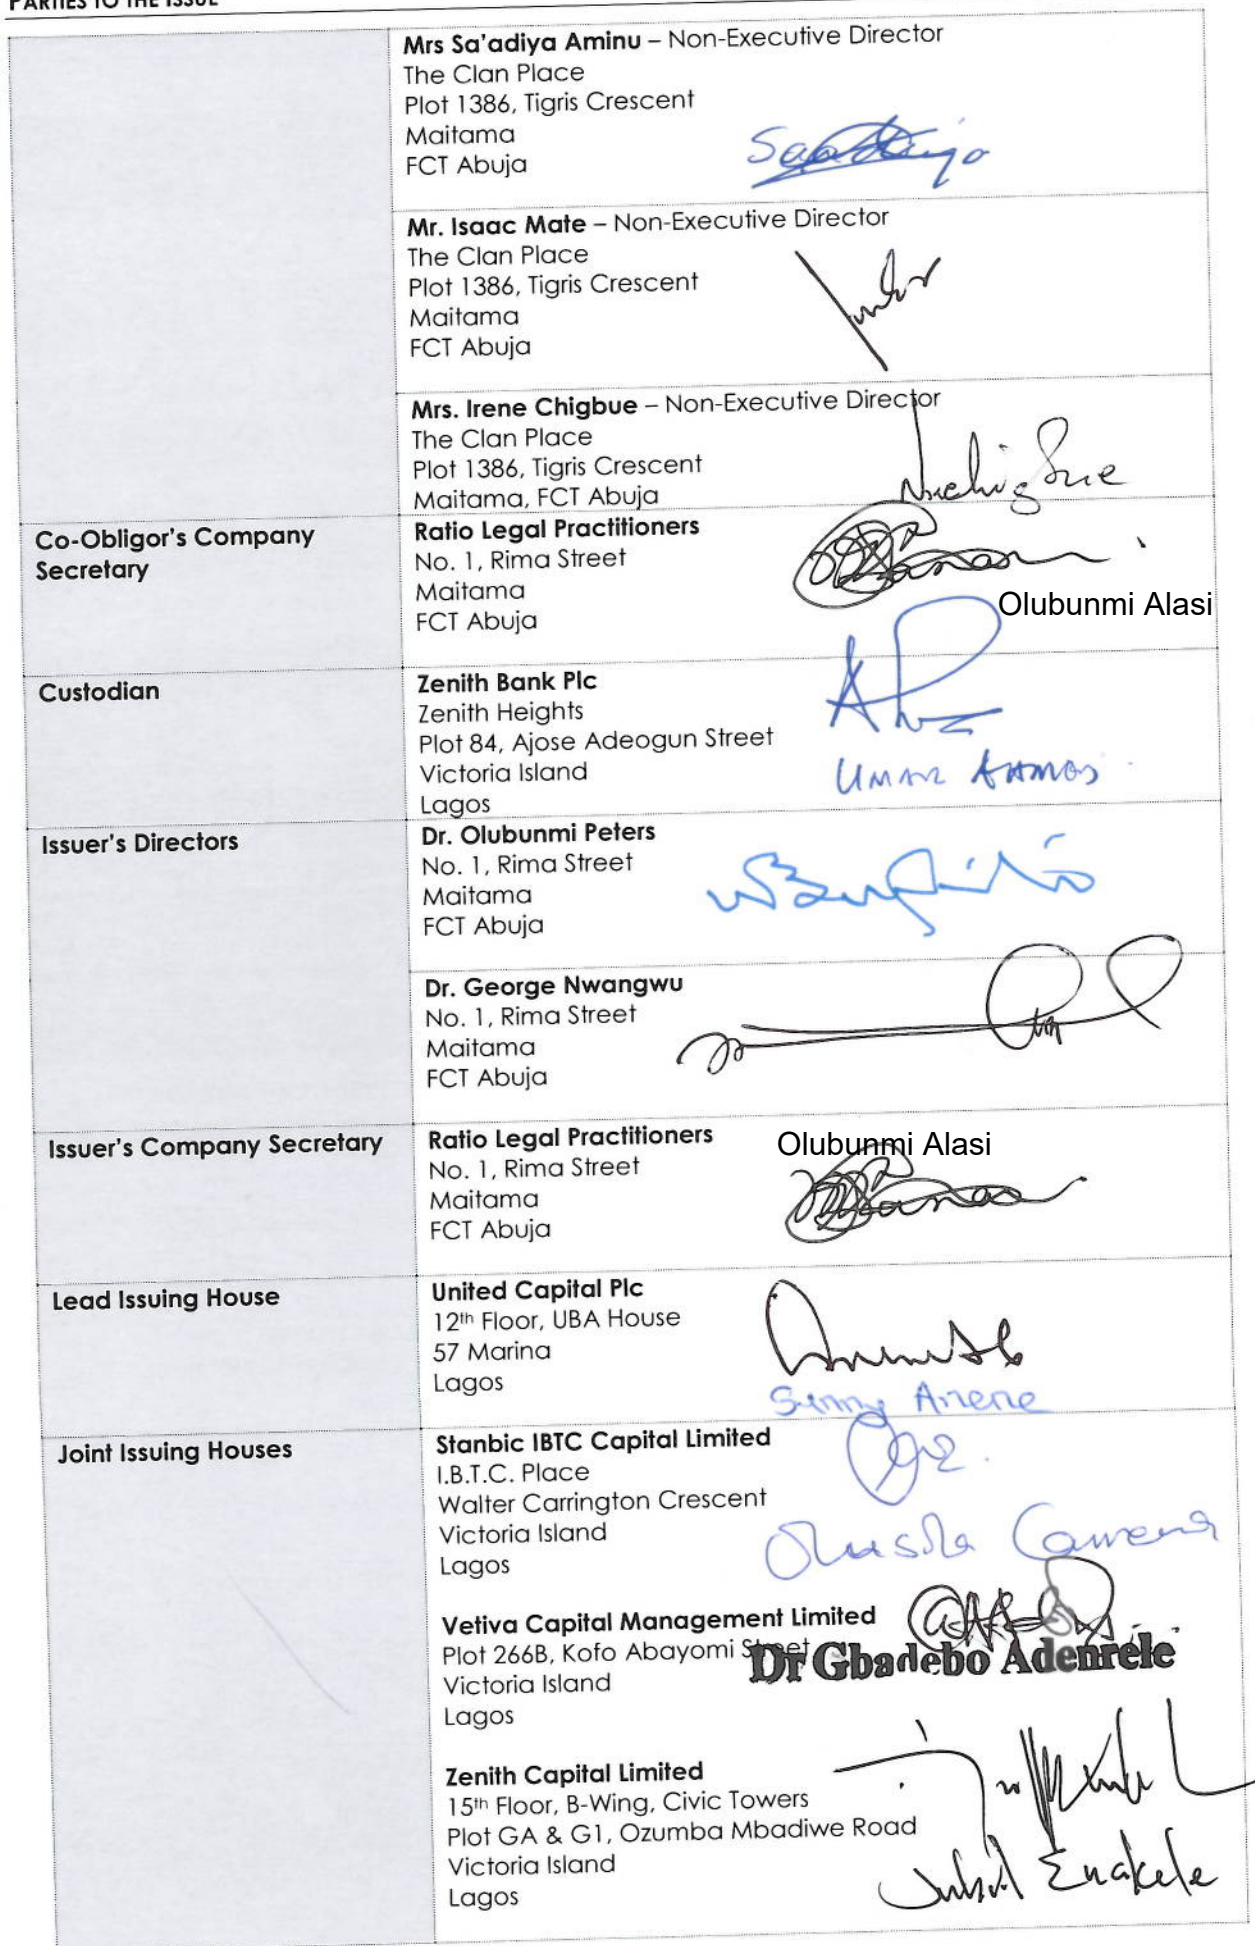 PARTIES TO THE ISSUE
Mrs Sa'adiya Aminu – Non-Executive Director
The Clan Place
Plot 1386, Tigris Crescent
Maitama
FCT Abuja
Mr. Isaac Mate – Non-Executive Director
The Clan Place
Plot 1386, Tigris Crescent
Maitama
FCT Abuja
Mrs. Irene Chigbue – Non-Executive Director
The Clan Place
Plot 1386, Tigris Crescent
Maitama, FCT Abuja
Co-Obligor's Company
Secretary
Ratio Legal Practitioners
No. 1, Rima Street
Maitama
FCT Abuja
Olubunmi Alasi
Custodian
Zenith Bank Plc
Zenith Heights
Plot 84, Ajose Adeogun Street
Victoria Island
Lagos
Issuer's Directors
Dr. Olubunmi Peters
No. 1, Rima Street
Maitama
FCT Abuja
Dr. George Nwangwu
No. 1, Rima Street
Maitama
FCT Abuja
Issuer's Company Secretary
Ratio Legal Practitioners
No. 1, Rima Street
Maitama
FCT Abuja
Olubunmi Alasi
Lead Issuing House
United Capital Plc
12th Floor, UBA House
57 Marina
Lagos
Sunny Anene
Joint Issuing Houses
Stanbic IBTC Capital Limited
I.B.T.C. Place
Walter Carrington Crescent
Victoria Island
Lagos
Vetiva Capital Management Limited
Plot 266B, Kofo Abayomi Street
Victoria Island
Lagos
Dr Gbadebo Adenrele
Zenith Capital Limited
15th Floor, B-Wing, Civic Towers
Plot GA & G1, Ozumba Mbadiwe Road
Victoria Island
Lagos
Enakele